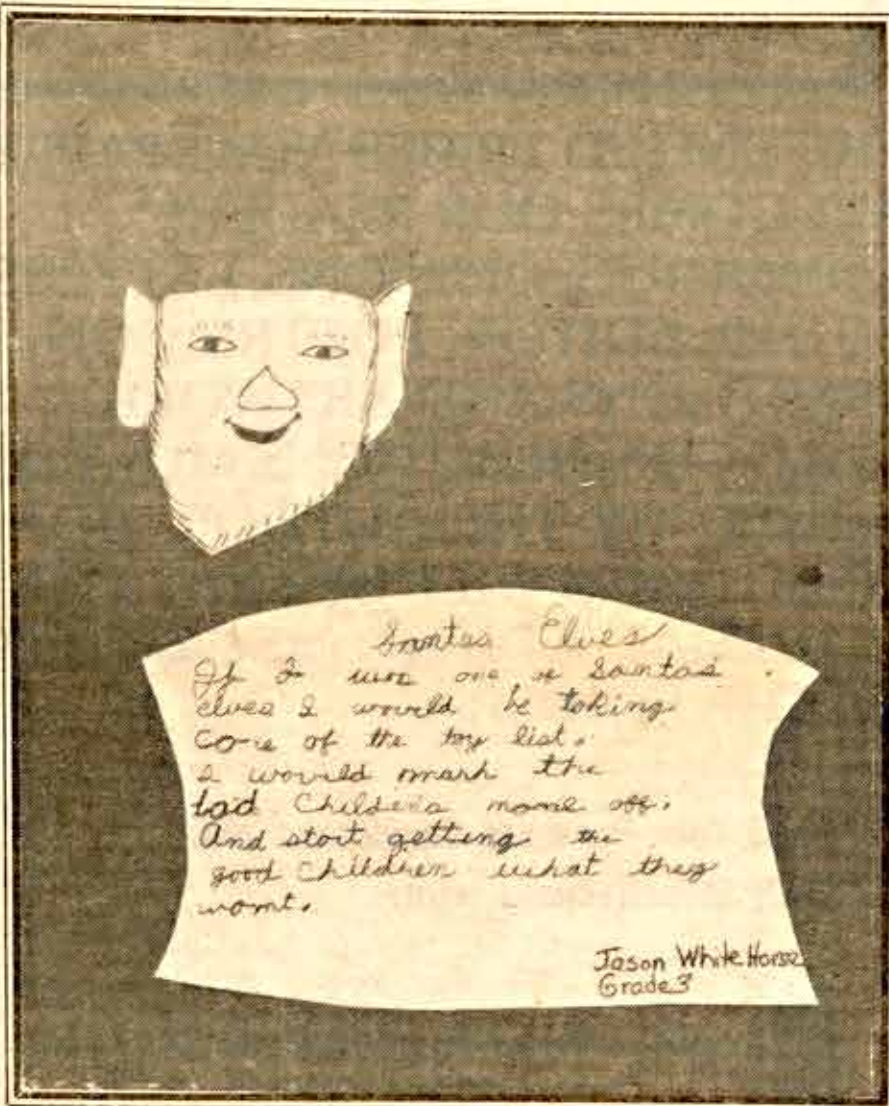 Santas Elves
If I was one of Santas
elves I would be taking
care of the toy list.
I would mark the
bad Childrens name off.
And start getting the
good Children what they
want.
Jason White Horse
Grade 3